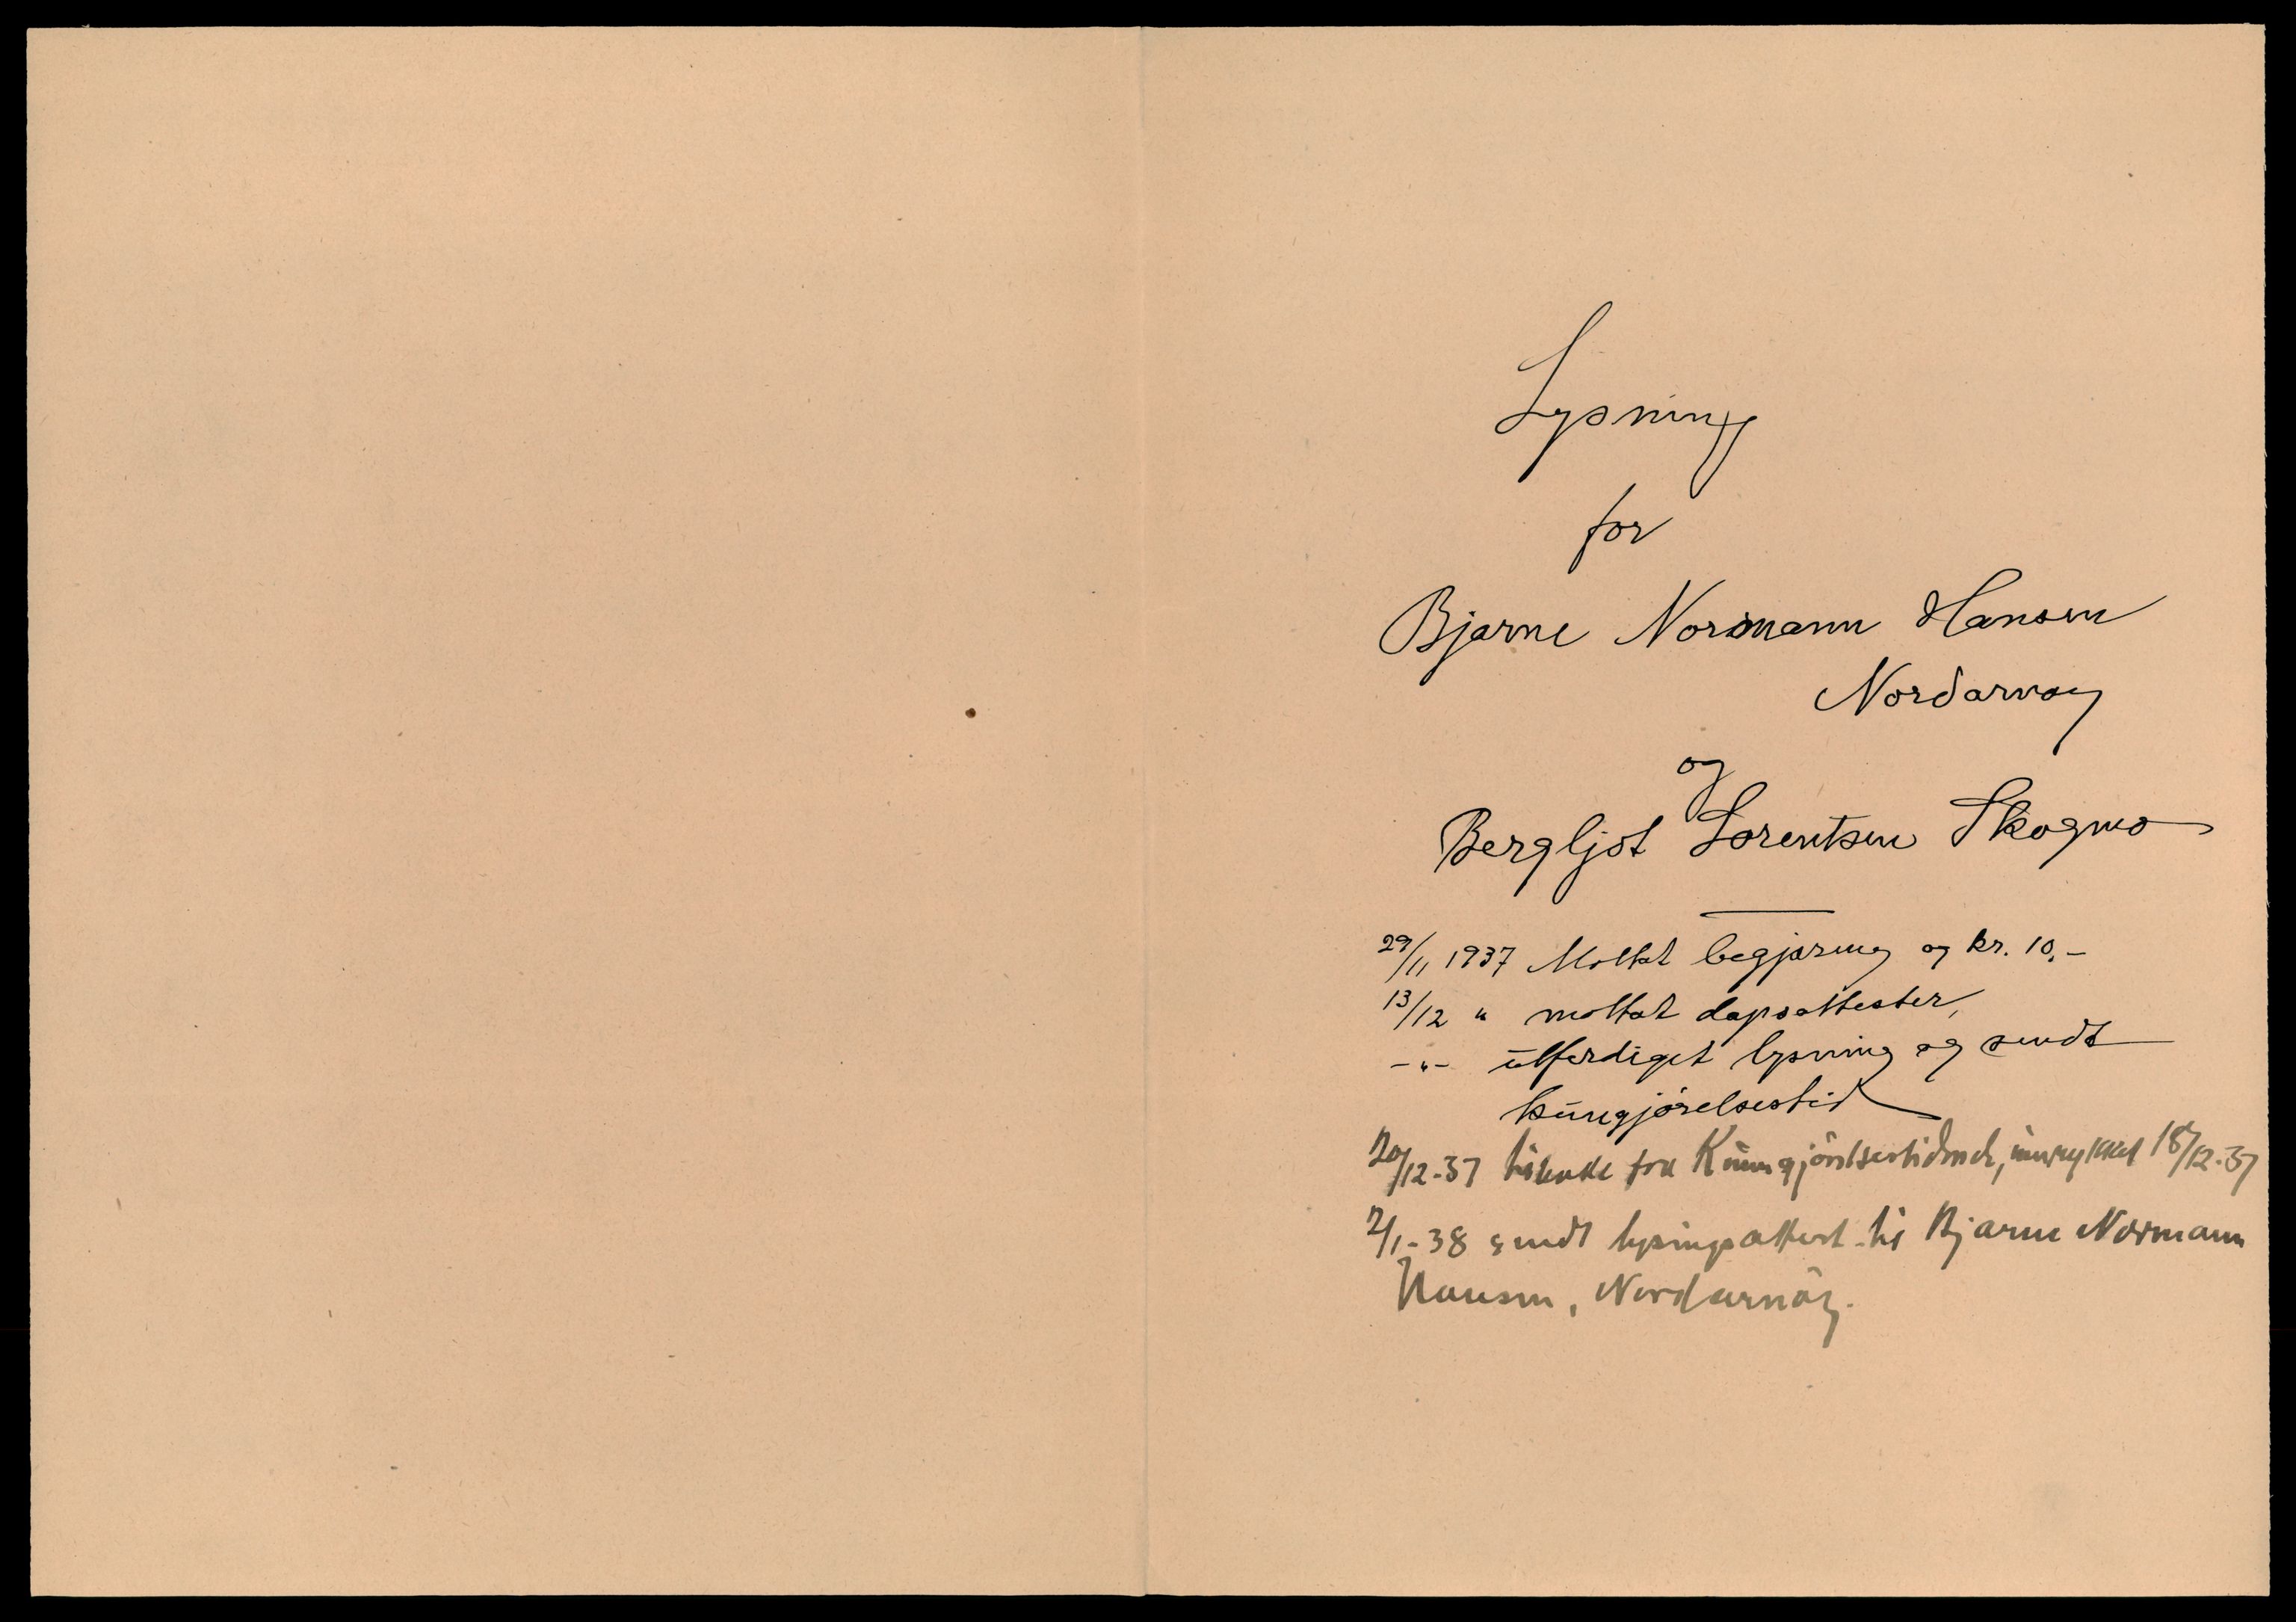 Lysning
for
Bjarne Normann Hansen
Nordarnøy
og
Bergljot Lorentsen Skogmo
29/11 1937 Mottat begjæring og kr. 10.-
13/12 " mottat dåpsattester,
-"- utferdiget lysning og sendt
kungjørelsestid
20/12-37 tilbake fra Kunngjörelsestidende, innrykket 18/12-37
7/1-38 sendt lysingsattest til Bjarne Normann
Hansen, Nordarnöy.